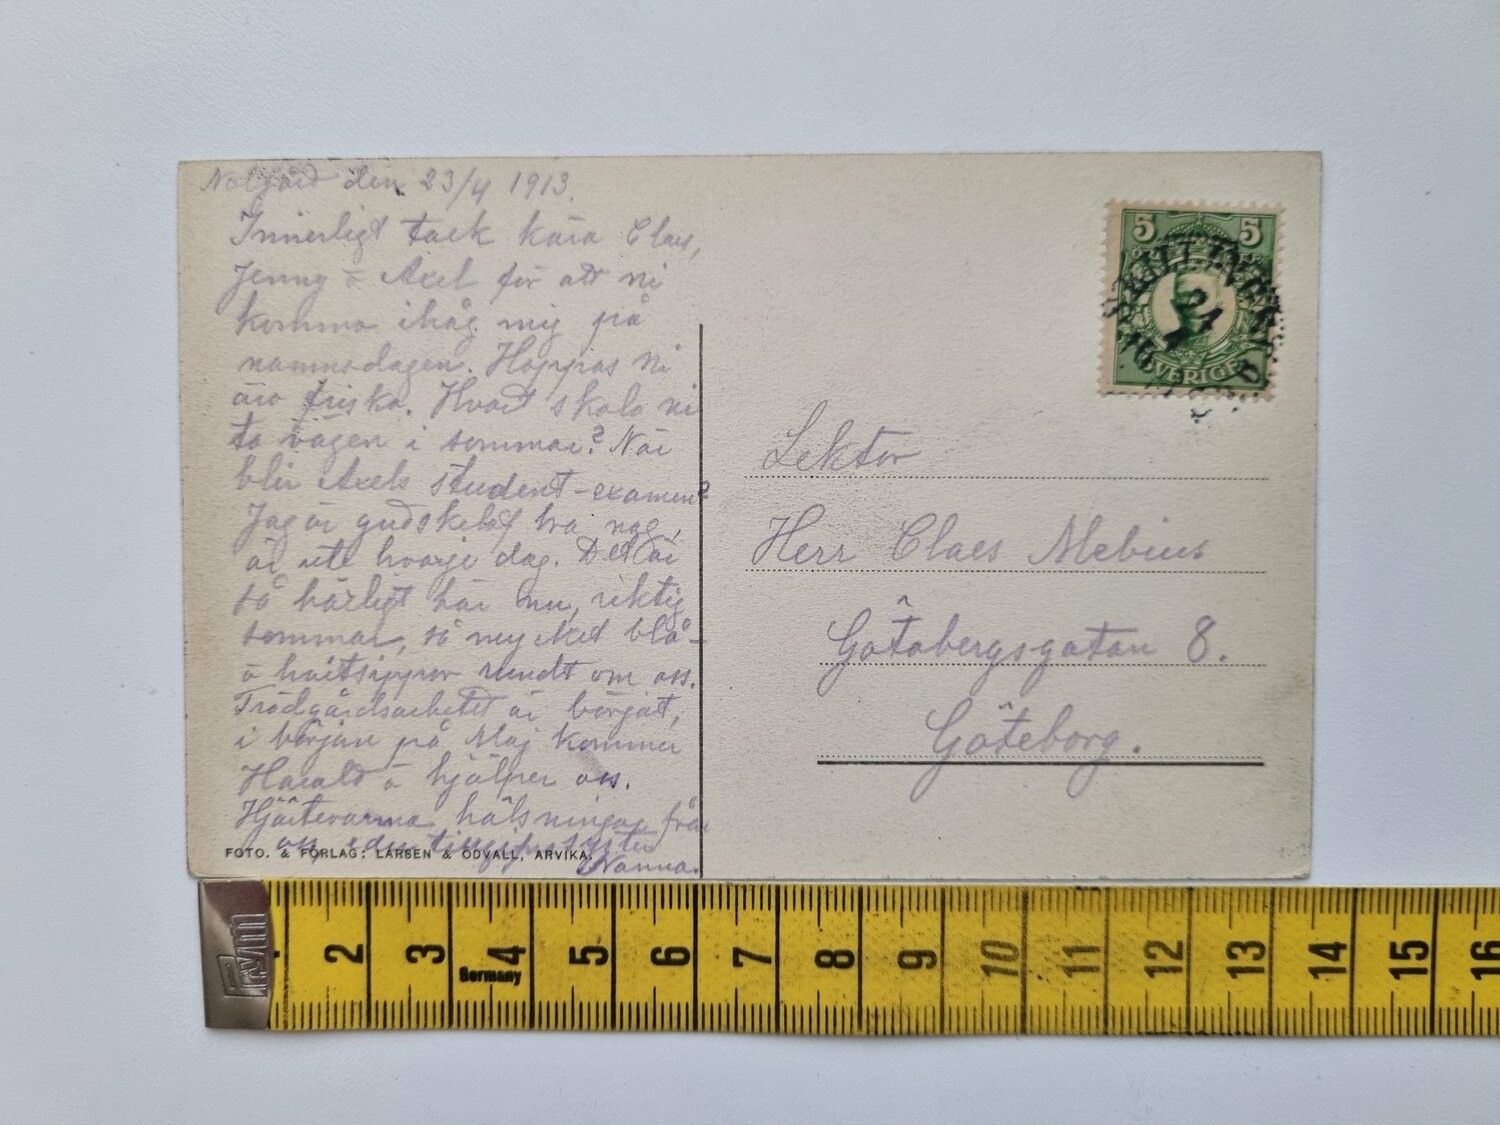 Nolgård den 23/4 1913.
Innerligt tack kära Claes,
Jenny o Axel för att ni
komma ihåg mig på
namnsdagen. Hoppas ni
äro friska. Hvart skola ni
ta vägen i sommar? När
blir Axels student-examen?
Jag är gudskelof bra nog,
är ute hvarje dag. Det är
så härligt här nu, riktig
sommar, så mycket blå-
o hvitsippor rundt om oss.
Trädgårdsarbetet är börjat,
i början på Maj kommer
Harald o hjälper oss.
Hjärtevarma hälsningar från
oss
Nanna.
FOTO. & FÖRLAG: LARSEN & ÖDVALL, ARVIKA.
5 5
SVERIGE
Lektor
Herr Claes Mebius
Götabergsgatan 8.
Göteborg.
prym
2 3 4 5 6 7 8 9 10 11 12 13 14 15 16
Germany